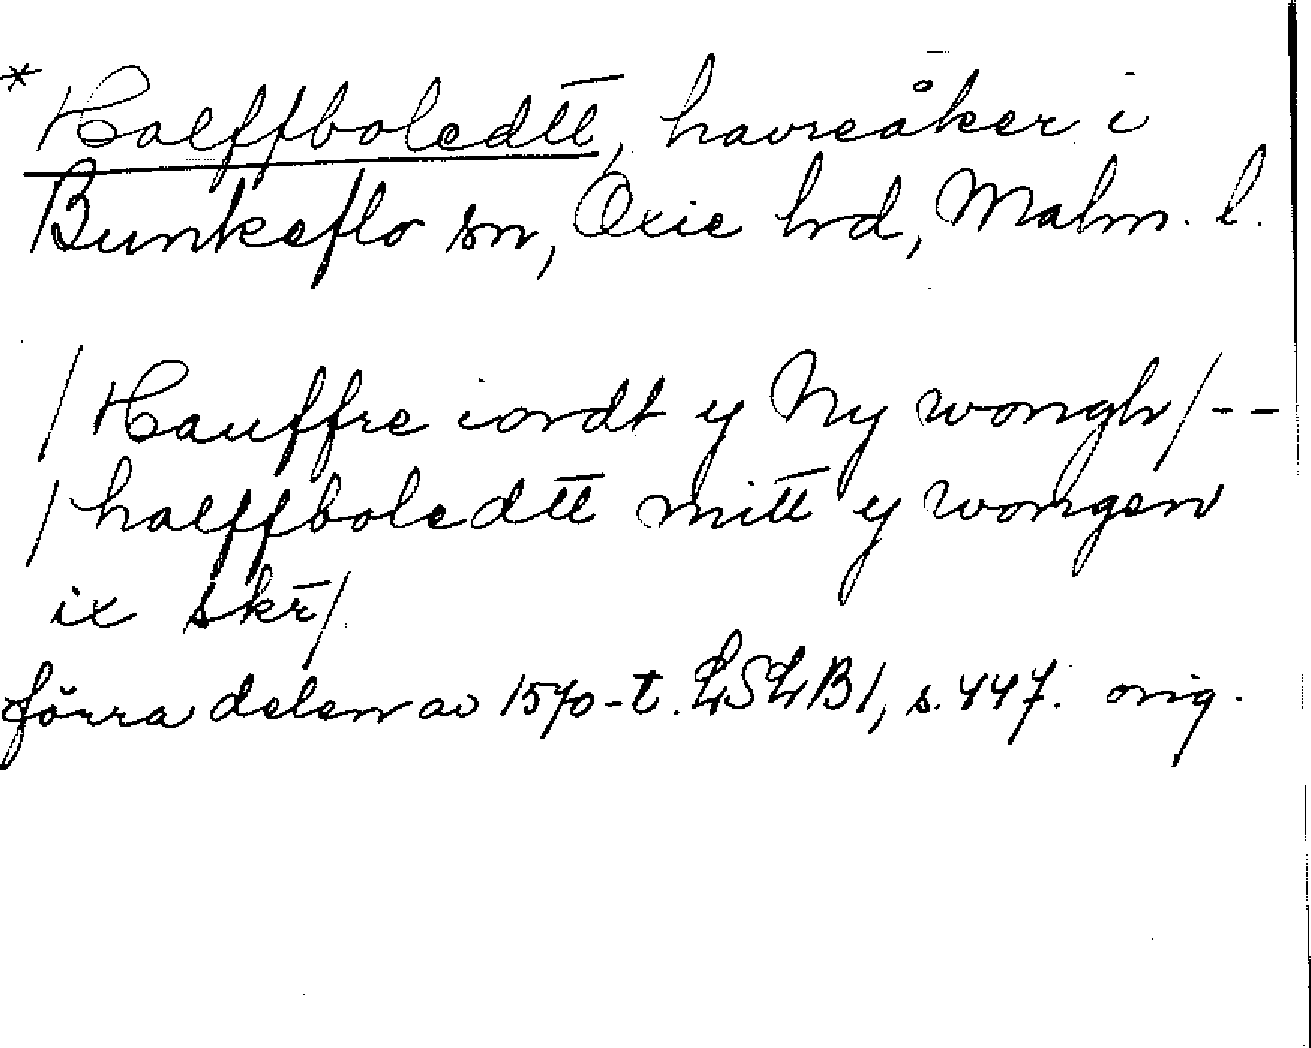 * Halffboledtt̅, havreåker i
Bunkeflo sn, Oxie hd, Malm. l.
/ Hauffre iordt y Ny wongh / - -
/ halffboledtt̅ mitt̅ y wongen
ix skr̅ /
förra delen av 1570-t. LSLB1, s. 447. orig.